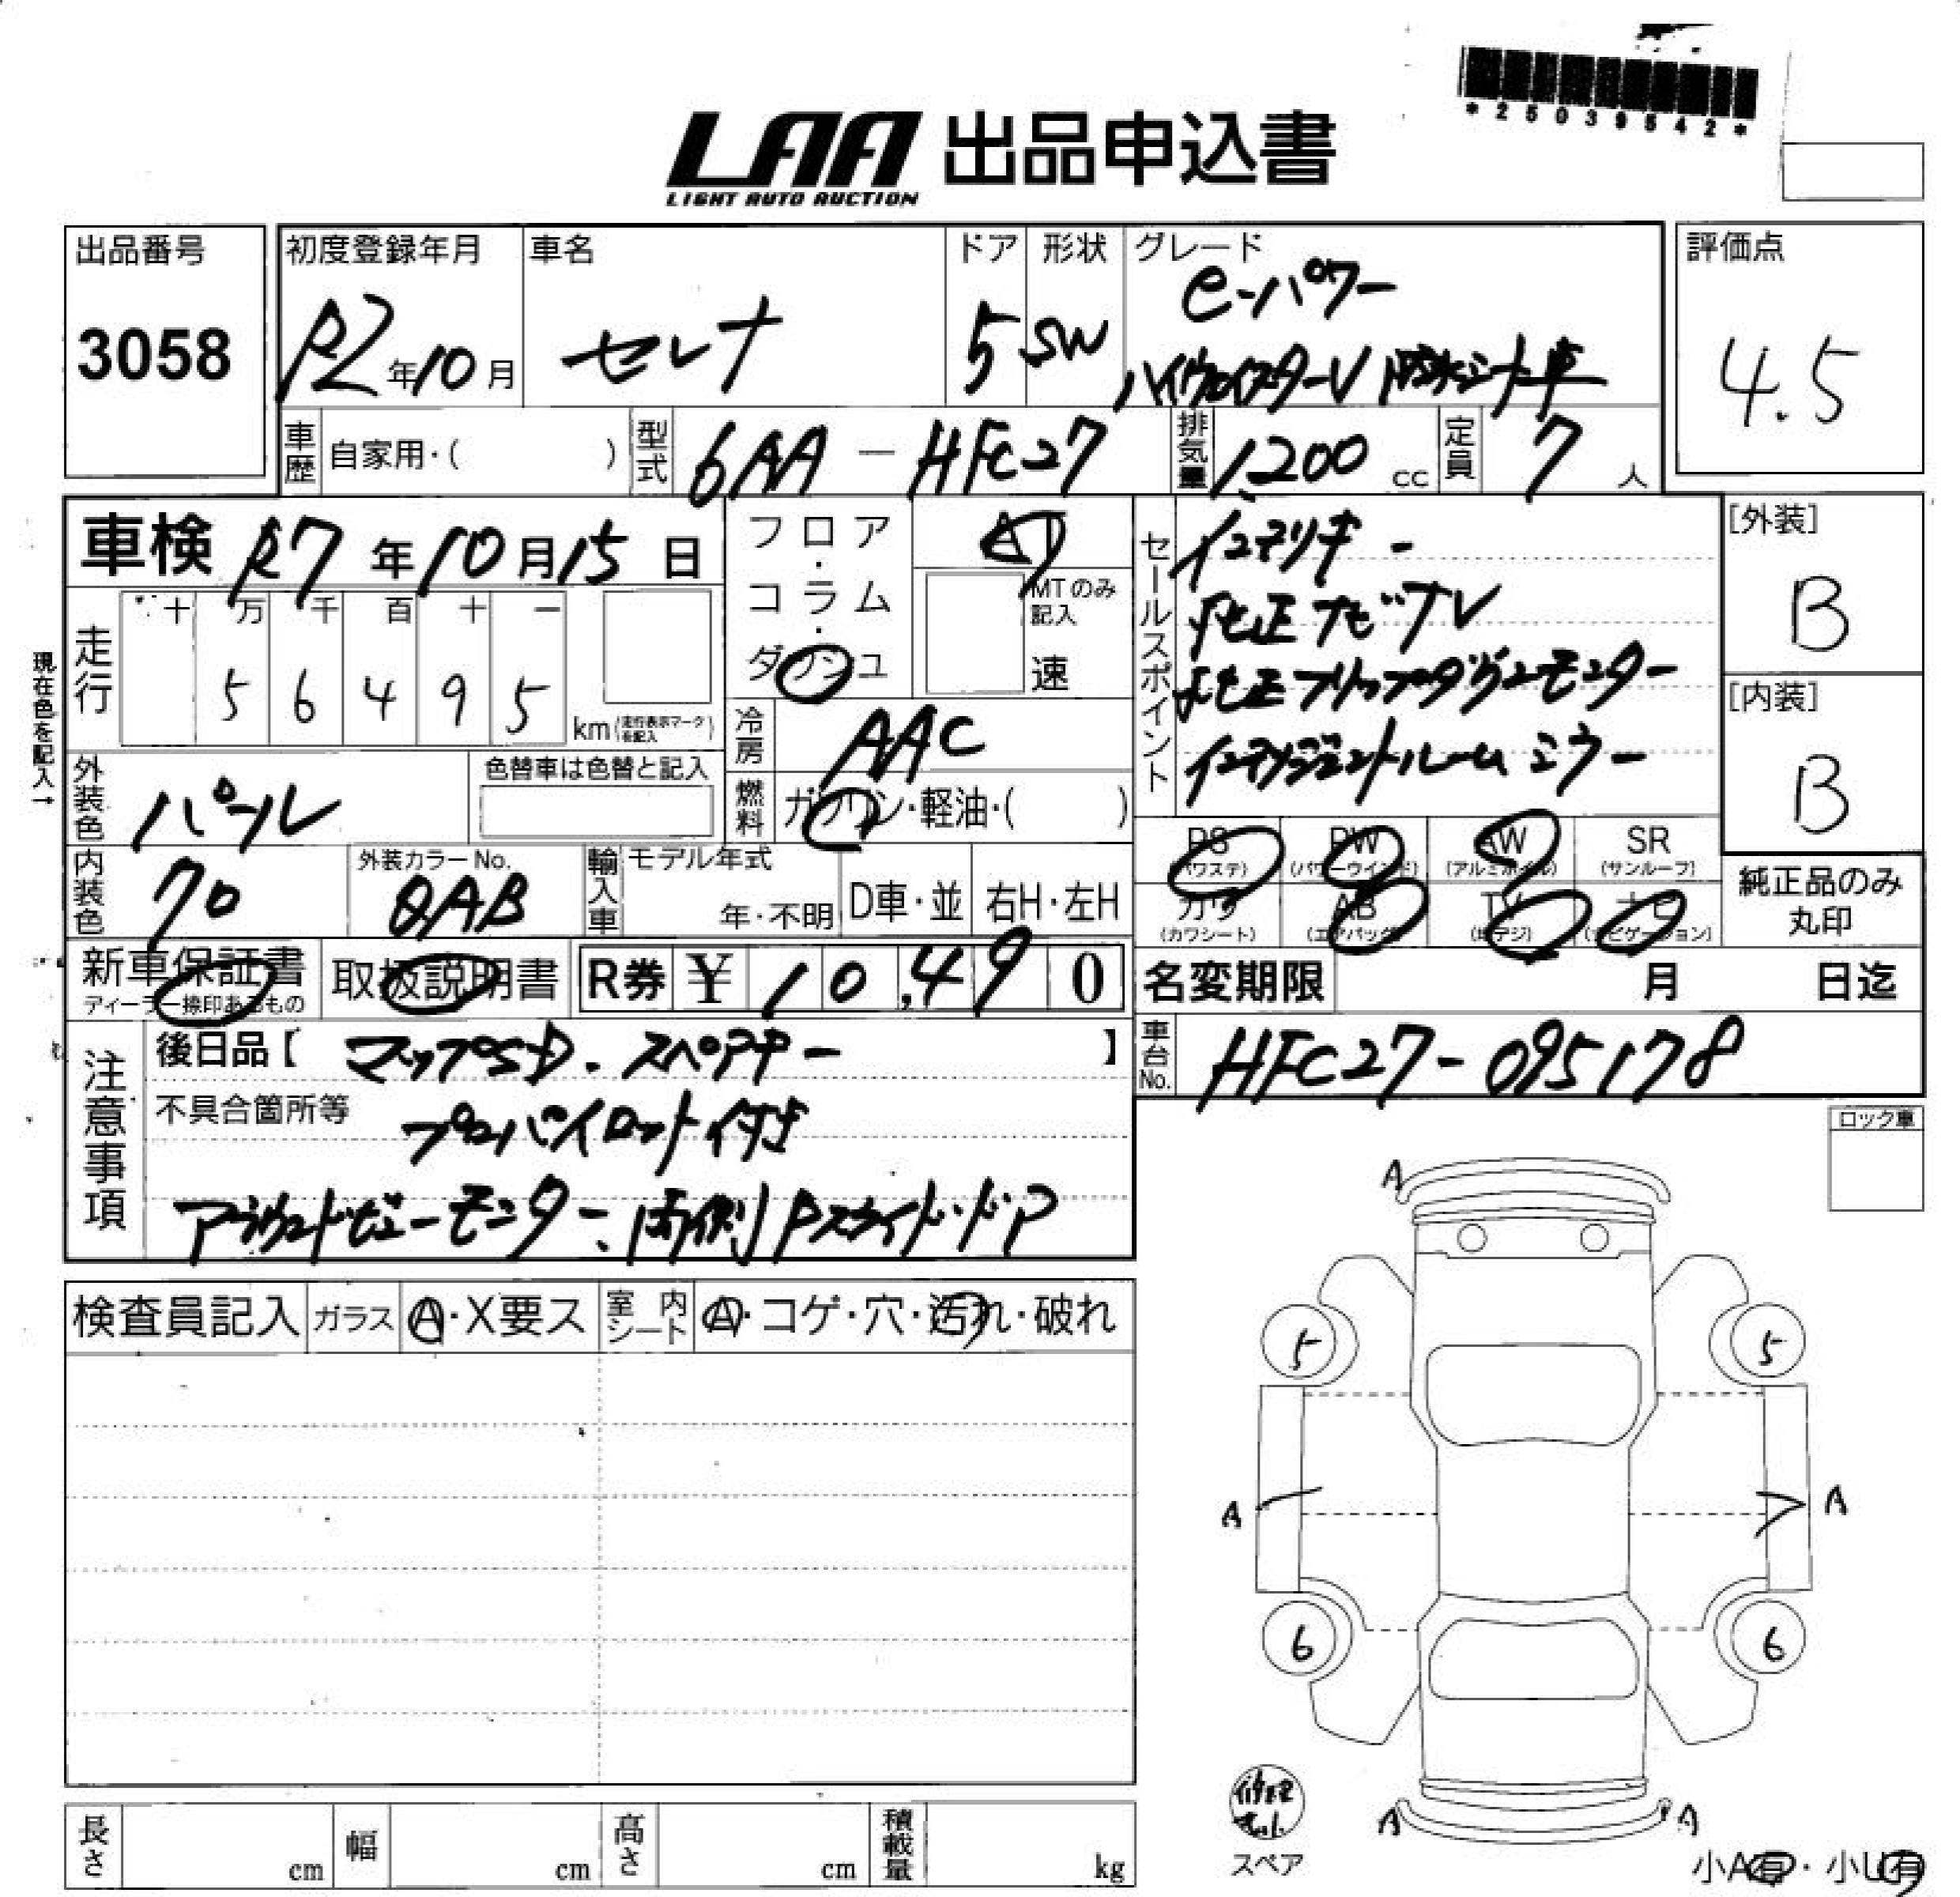 *25039542*
LAA 出品申込書
LIGHT AUTO AUCTION
出品番号
3058
初度登録年月
R2年10月
車名
セレナ
ドア
5
形状
SW
グレード
e-パワー
ハイウェイスターV 防水シート車
評価点
4.5
車歴 自家用・( )
型式 6AA-HFC27
排気量 1,200 cc
定員 7 人
車検 R7年10月15日
フロア・コラム・ダッシュ
AT
MTのみ記入
速
セールスポイント
インテリキー
純正ナビTV
純正フリップダウンモニター
インテリジェントルームミラー
[外装]
B
[内装]
B
現在色を記入→
走行
十 万 千 百 十 一
5 6 4 9 5
km(走行表示マークを記入)
冷房 AAC
燃料 ガソリン・軽油・( )
外装色 パール
色替車は色替と記入
内装色 クロ
外装カラーNo.
QAB
輸入車
モデル年式
年・不明
D車・並
右H・左H
PS
(パワステ)
PW
(パワーウインド)
AW
(アルミホイル)
SR
(サンルーフ)
カワ
(カワシート)
AB
(エアバッグ)
TV
(地デジ)
ナビ
(ナビゲーション)
純正品のみ
丸印
新車保証書
ディーラー捺印あるもの
取扱説明書
R券 ¥ 10,490
名変期限 月 日迄
注意事項
後日品【 マップSD.スペアキー 】
不具合箇所等
プロパイロット付き
アラウンドビューモニター.両側Pスライド・ドア
車台No. HFC27-095178
ロック車
検査員記入
ガラス
A・X要ス
室内シート
A・コゲ・穴・汚れ・破れ
A
5 5
A A
6 6
A A
修理キット
スペア
小A有・小U有
長さ cm
幅 cm
高さ cm
積載量 kg